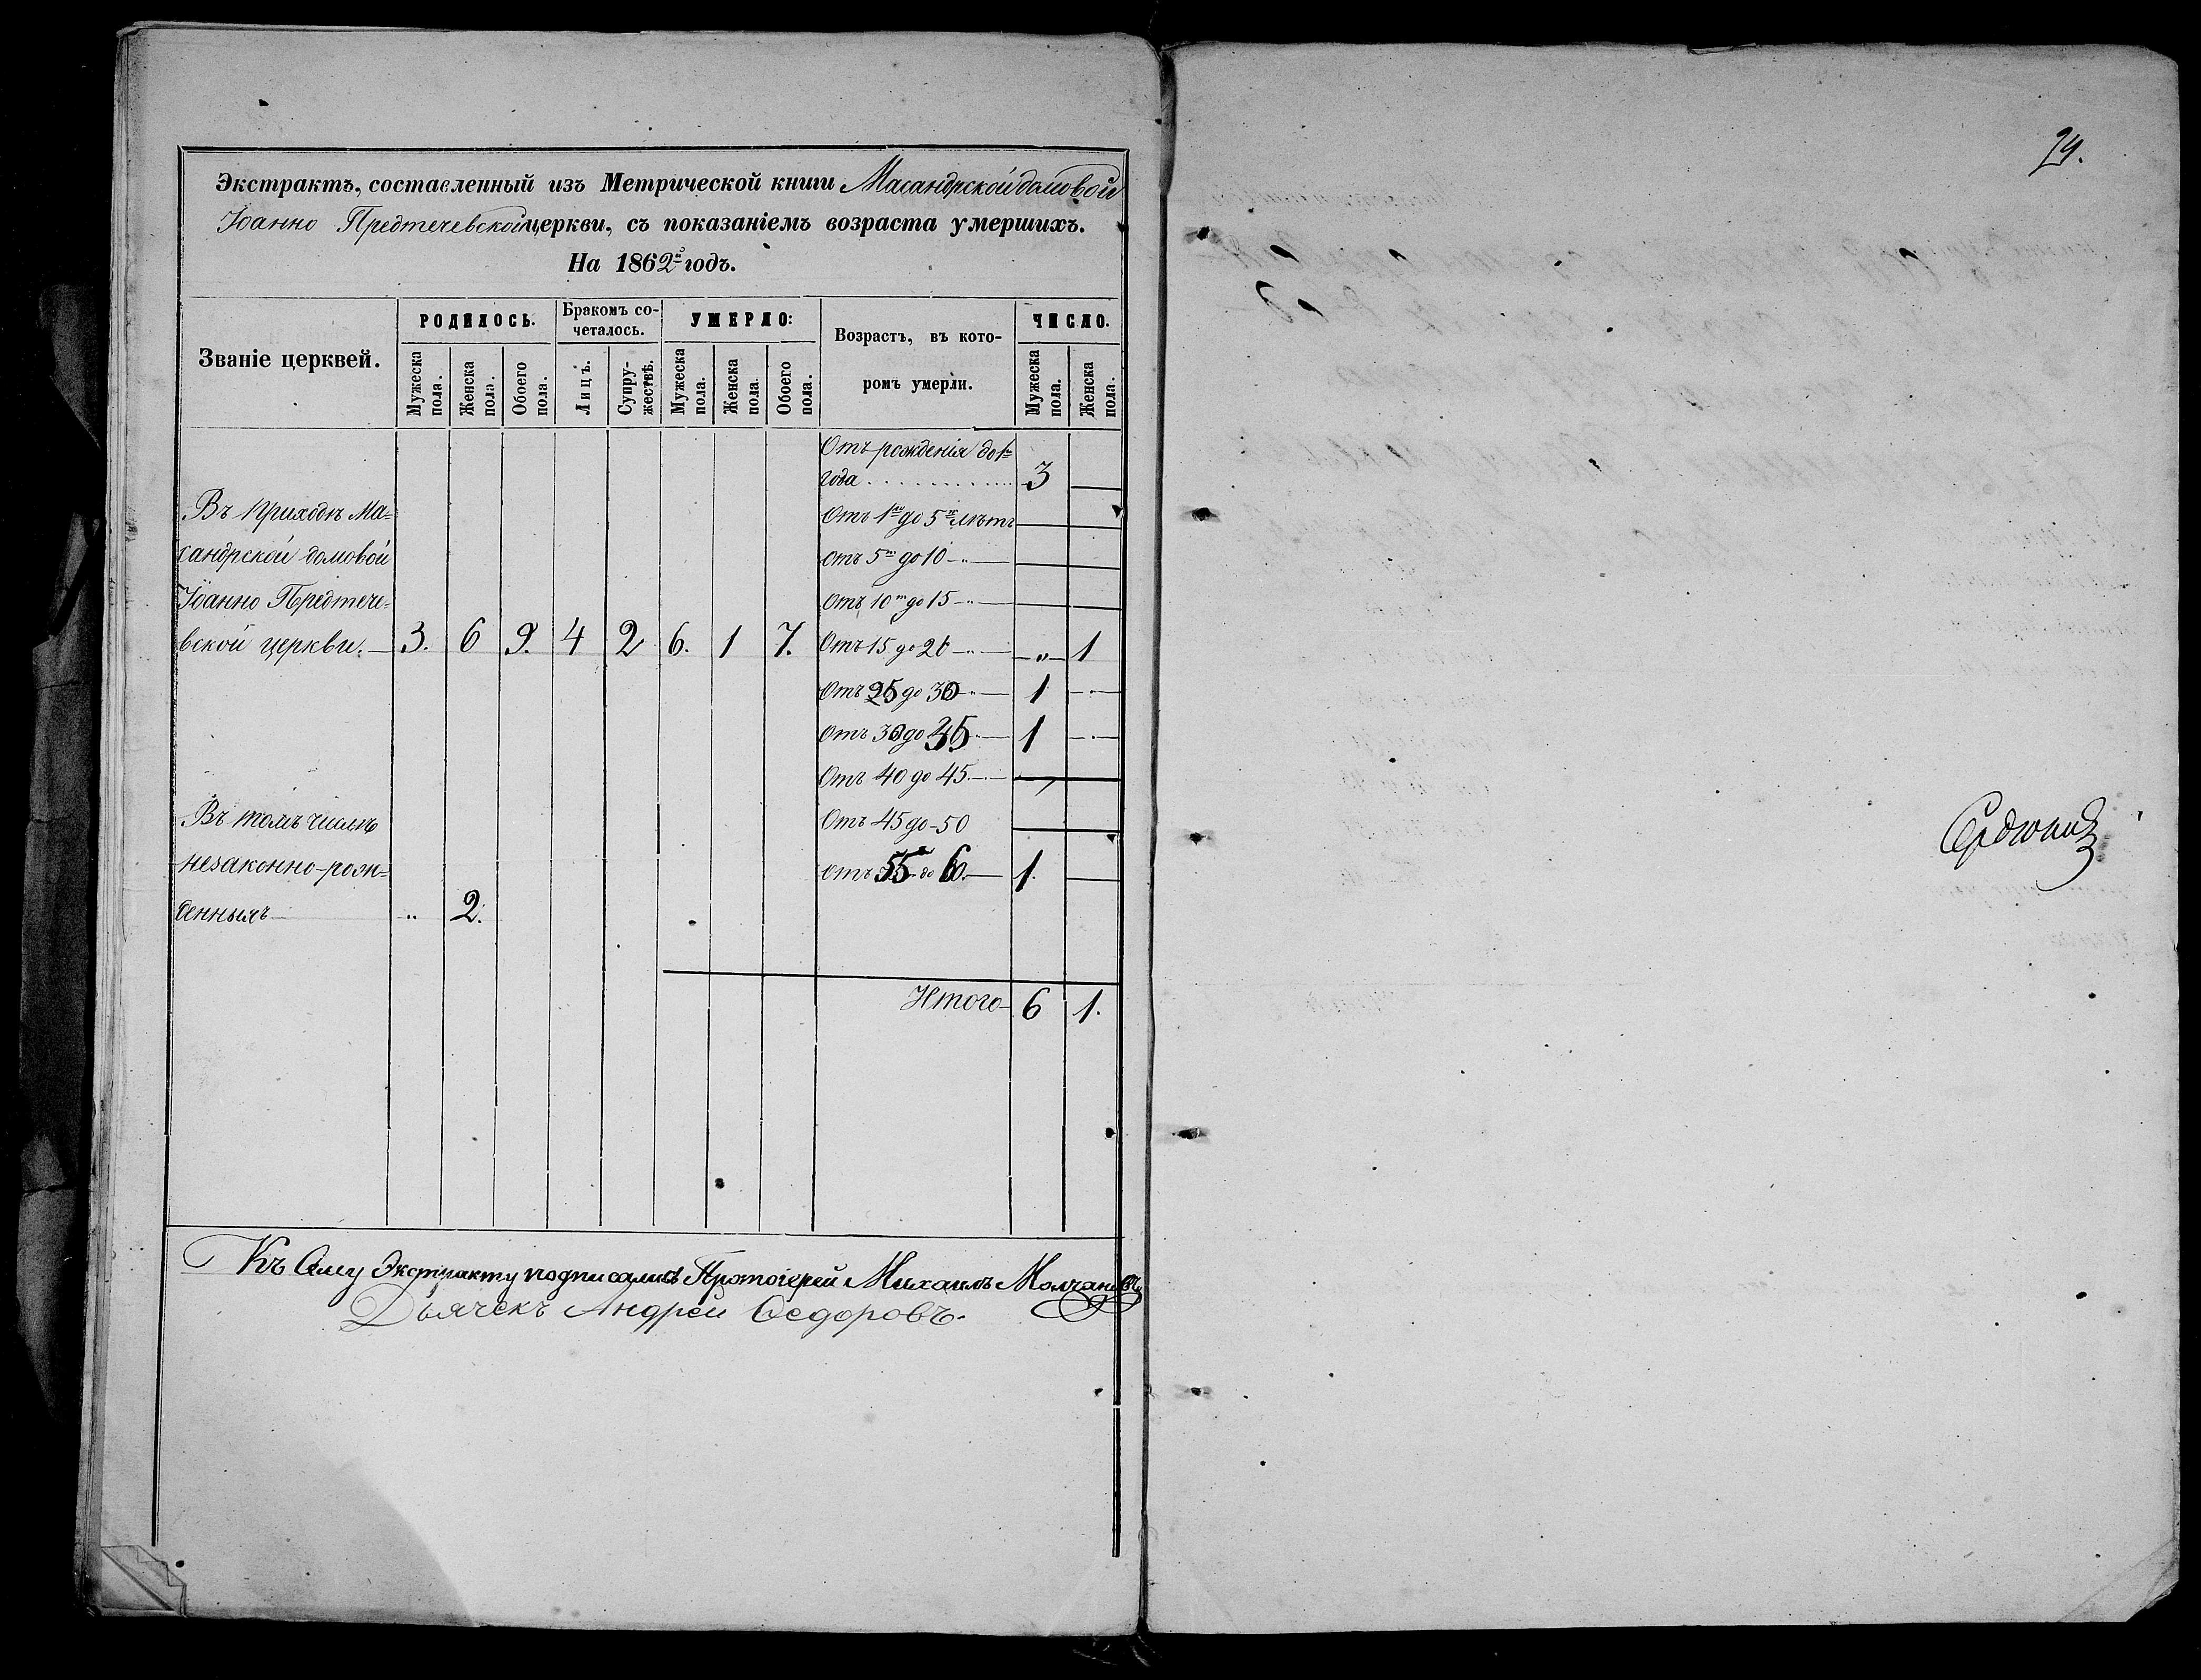 Экстрактъ, составленный изъ Метрической книги Масандрской домовой
Іоанно Предтечевской церкви, съ показаніемъ возраста умершихъ.
На 1862й годъ.
Званіе церквей.
РОДИЛОСЬ.
Мужеска пола.
Женска пола.
Обоего пола.
Бракомъ со-
четалось.
Лицъ.
Супру-
жествъ.
УМЕРЛО:
Мужеска пола.
Женска пола.
Обоего пола.
Возрастъ, въ кото-
ромъ умерли.
ЧИСЛО.
Мужеска пола.
Женска пола.
Отъ рожденія до 1го
года . . . . . . . . . . . . 3 —
Въ приходѣ Ма-
сандрской домовой
Іоанно Предтече-
вской церкви. — 3. 6 9. 4 2 6. 1 7.
Отъ 1го до 5ти лѣтъ — —
Отъ 5ти до 10 — " — — —
Отъ 10ти до 15 — " — — —
Отъ 15 до 20 — " — — " — 1
Отъ 25 до 30 — " — 1 — " —
Отъ 30 до 35 — 1 — " —
Отъ 40 до 45. — — —
Отъ 45 до 50 — —
Отъ 55 до 60. — 1. —
Въ томъ числѣ
незаконно-рож-
денныхъ — " 2.
Итого — 6 1.
Къ сему Экстракту подписались Протоіерей Михаилъ Молчановъ
Дьячекъ Андрей Ѳедоровъ.
24.